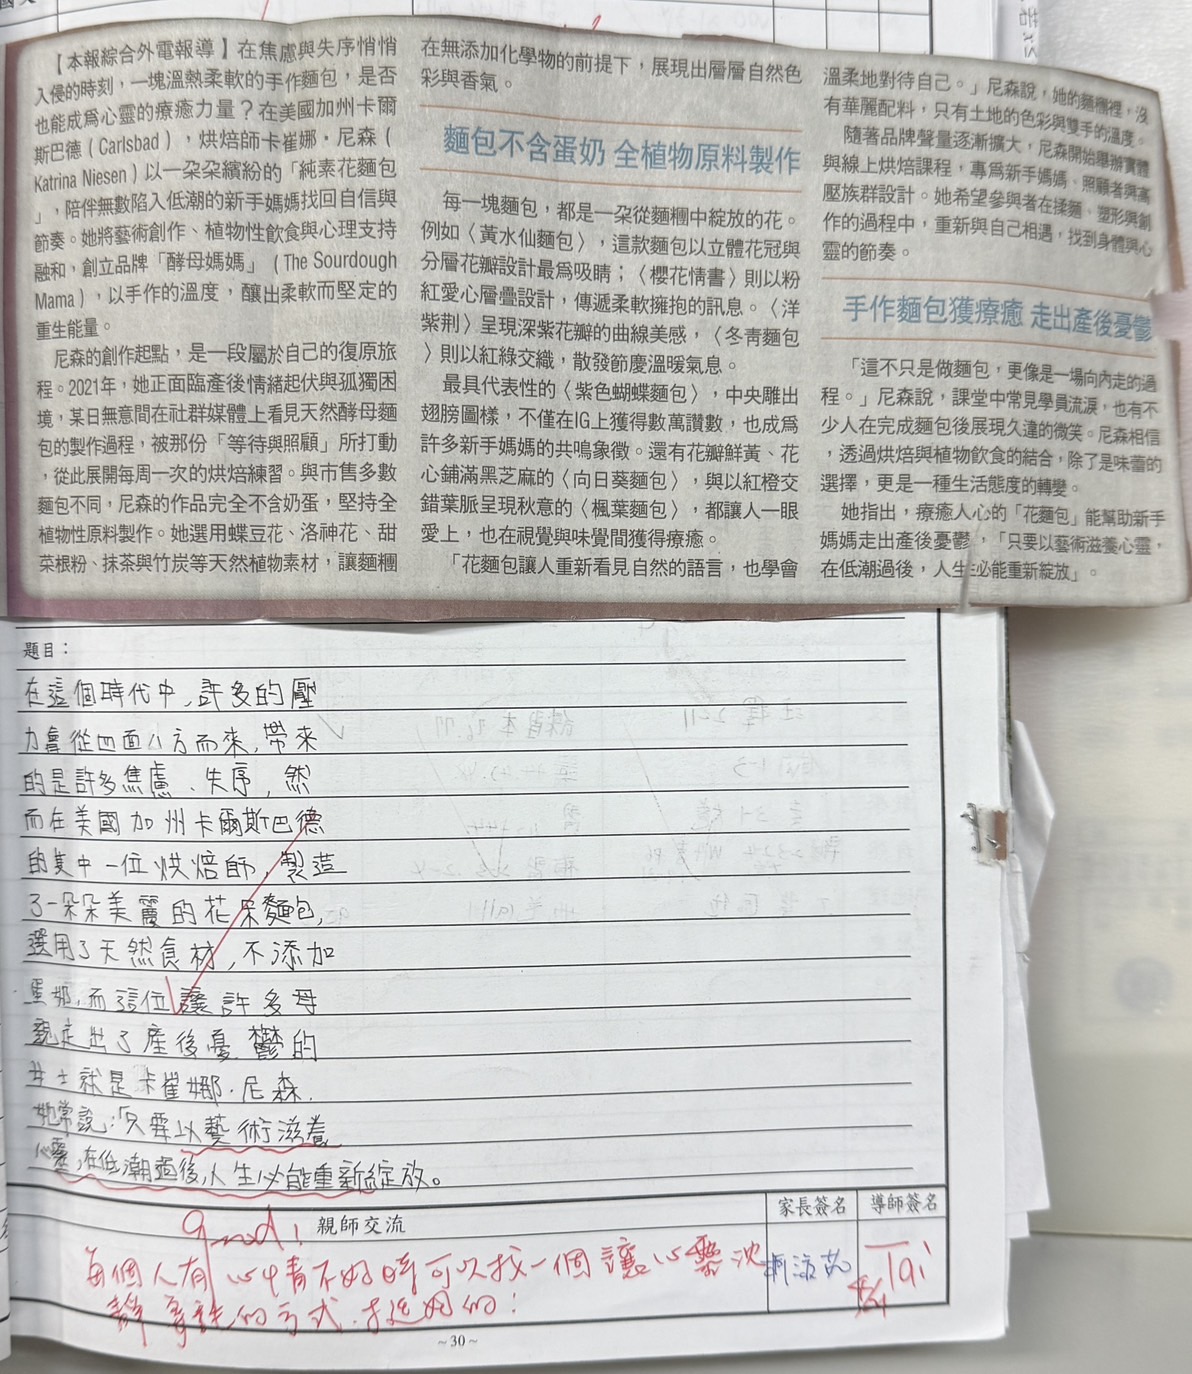 【本報綜合外電報導】在焦慮與失序悄悄
入侵的時刻，一塊溫熱柔軟的手作麵包，是否
也能成為心靈的療癒力量？在美國加州卡爾
斯巴德（Carlsbad），烘焙師卡崔娜．尼森（
Katrina Niesen）以一朵朵繽紛的「純素花麵包
」，陪伴無數陷入低潮的新手媽媽找回自信與
節奏。她將藝術創作、植物性飲食與心理支持
融和，創立品牌「酵母媽媽」（The Sourdough
Mama），以手作的溫度，釀出柔軟而堅定的
重生能量。
尼森的創作起點，是一段屬於自己的復原旅
程。2021年，她正面臨產後情緒起伏與孤獨困
境，某日無意間在社群媒體上看見天然酵母麵
包的製作過程，被那份「等待與照顧」所打動
，從此展開每周一次的烘焙練習。與市售多數
麵包不同，尼森的作品完全不含奶蛋，堅持全
植物性原料製作。她選用蝶豆花、洛神花、甜
菜根粉、抹茶與竹炭等天然植物素材，讓麵糰
在無添加化學物的前提下，展現出層層自然色
彩與香氣。
麵包不含蛋奶 全植物原料製作
每一塊麵包，都是一朵從麵糰中綻放的花。
例如〈黃水仙麵包〉，這款麵包以立體花冠與
分層花瓣設計最為吸睛；〈櫻花情書〉則以粉
紅愛心層疊設計，傳遞柔軟擁抱的訊息。〈洋
紫荊〉呈現深紫花瓣的曲線美感，〈冬青麵包
〉則以紅綠交織，散發節慶溫暖氣息。
最具代表性的〈紫色蝴蝶麵包〉，中央雕出
翅膀圖樣，不僅在IG上獲得數萬讚數，也成為
許多新手媽媽的共鳴象徵。還有花瓣鮮黃、花
心鋪滿黑芝麻的〈向日葵麵包〉，與以紅橙交
錯葉脈呈現秋意的〈楓葉麵包〉，都讓人一眼
愛上，也在視覺與味覺間獲得療癒。
「花麵包讓人重新看見自然的語言，也學會
溫柔地對待自己。」尼森說，她的麵糰裡，沒
有華麗配料，只有土地的色彩與雙手的溫度。
隨著品牌聲量逐漸擴大，尼森開始舉辦實體
與線上烘焙課程，專為新手媽媽、照顧者與高
壓族群設計。她希望參與者在揉麵、塑形與創
作的過程中，重新與自己相遇，找到身體與心
靈的節奏。
手作麵包獲療癒 走出產後憂鬱
「這不只是做麵包，更像是一場向內走的過
程。」尼森說，課堂中常見學員流淚，也有不
少人在完成麵包後展現久違的微笑。尼森相信
，透過烘焙與植物飲食的結合，除了是味蕾的
選擇，更是一種生活態度的轉變。
她指出，療癒人心的「花麵包」能幫助新手
媽媽走出產後憂鬱，「只要以藝術滋養心靈，
在低潮過後，人生必能重新綻放」。
題目：
在這個時代中，許多的壓
力會從四面八方而來，帶來
的是許多焦慮、失序，然
而在美國加州卡爾斯巴德
的其中一位烘焙師，製造
了一朵朵美麗的花朵麵包，
選用了天然食材，不添加
蛋奶，而這位讓許多母
親走出了產後憂鬱的
女士就是卡崔娜．尼森．
她常說：「只要以藝術滋養
心靈，在低潮過後，人生必能重新綻放。
good!
親師交流
家長簽名
導師簽名
每個人有心情不好時可以找一個讓心靈沈
靜的方式．才是好的！
Tai
~30~